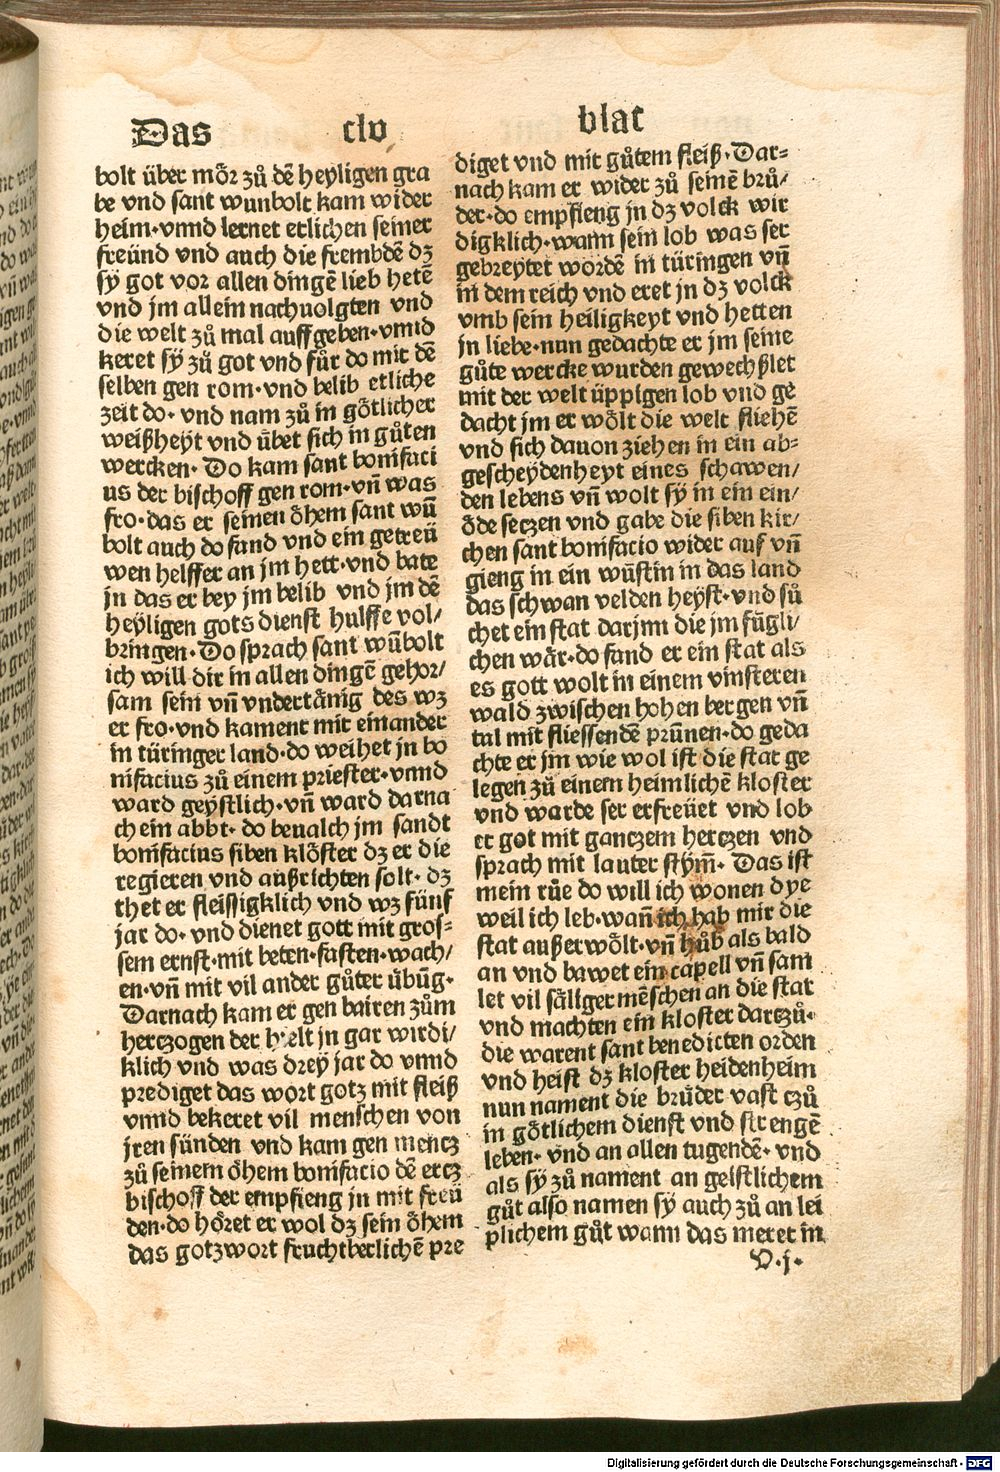 Das clv blat
bolt über mör zů dē heyligen gra
be vnd sant wunbolt kam wider
heim·vnnd lernet etlichen seiner
freünd vnd auch die frembdē dz
sy got vor allen dingē lieb hetē
vnd jm allein nachuolgten vnd
die welt zů mal auffgeben·vnnd
keret sÿ zů got vnd fůr do mit dē
selben gen rom·vnd belib etliche
zeit do· vnd nam zů in götlicher
weißheyt vnd ůbet sich in gůten
wercken· Do kam sant bonifaci
us der bischoff gen rom·vñ was
fro·das er seinen öhem sant wū
bolt auch do fand vnd ein getreü
wen helffer an jm hett·vnd bate
jn das er bey jm belib vnd jm dē
heÿligen gots dienst hulffe vol/
bringen· Do sprach sant wūbolt
ich will dir in allen dingē gehor/
sam sein vñ vndertänig des wz
er fro·vnd kament mit einander
in türinger land·do weihet jn bo
nifacius zů einem priester·vnnd
ward geystlich·vñ ward darna
ch ein abbt· do beualch jm sandt
bonifacius siben klöster dz er die
regieren vnd außrichten solt· dz
thet er fleissigklich vnd wz fünf
jar do· vnd dienet gott mit gros=
sem ernst·mit beten·fasten·wach/
en·vñ mit vil ander gůter ůbūg·
Darnach kam er gen bairen zům
herczogen der hielt jn gar wirdi/
klich vnd was dreÿ jar do vnnd
prediget das wort gotz mit fleiß
vnnd bekeret vil menschen von
jren sünden vnd kam gen mencz
zů seinem öhem bonifacio dē ercz
bischoff der empfieng jn mit freü
den·do höret er wol dz sein öhem
das gotzwort fruchtberlichē pre
diget vnd mit gůtem fleiß·Dar=
nach kam er wider zů seinē brů/
der·do empfieng jn dz volck wir
digklich·wann sein lob was ser
gebreytet wordē in türingen vñ
in dem reich vnd eret jn dz volck
vmb sein heiligkeyt vnd hetten
jn liebe·nun gedachte er jm seine
gůte wercke wurden gewechßlet
mit der welt üppigen lob vnd ge
dacht jm er wölt die welt fliehē
vnd sich dauon ziehen in ein ab=
gescheydenheyt eines schawen/
den lebens vñ wolt sÿ in ein ein/
öde seczen vnd gabe die siben kir/
chen sant bonifacio wider auf vñ
gieng in ein wůstin in das land
das schwan velden heyst·vnd sů
chet ein stat darjnn die jm fügli/
chen wär·do fand er ein stat als
es gott wolt in einem vinsteren
wald zwischen hohen bergen vñ
tal mit fliessendē prünnen·do geda
chte er jm wie wol ist die stat ge
legen zů einem heimlichē kloster
vnd warde ser erfreüet vnd lob
et got mit ganczem herczen vnd
sprach mit lauter stym̄· Das ist
mein růe do will ich wonen dye
weil ich leb·wañ ich hab mir die
stat außerwölt·vñ hůb als bald
an vnd bawet ein capell vñ sam
let vil säliger mēschen an die stat
vnd machten ein kloster darczů·
die warent sant benedicten orden
vnd heist dz kloster heidenheim
nun nament die brůder vast czů
in götlichem dienst vnd strengē
leben· vnd an allen tugendē· vnd
als sÿ zů nament an geistlichem
gůt also namen sÿ auch zů an lei
plichem gůt wann das meret in
V·j·
Digitalisierung gefördert durch die Deutsche Forschungsgemeinschaft - DFG